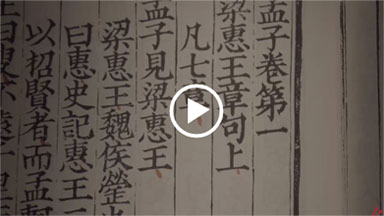 孟子卷第一
梁惠王章句上
凡七章
孟子見梁惠王
梁惠王魏侯罃也
曰惠史記惠王三
以招賢者而孟軻
曰叟不遠千里